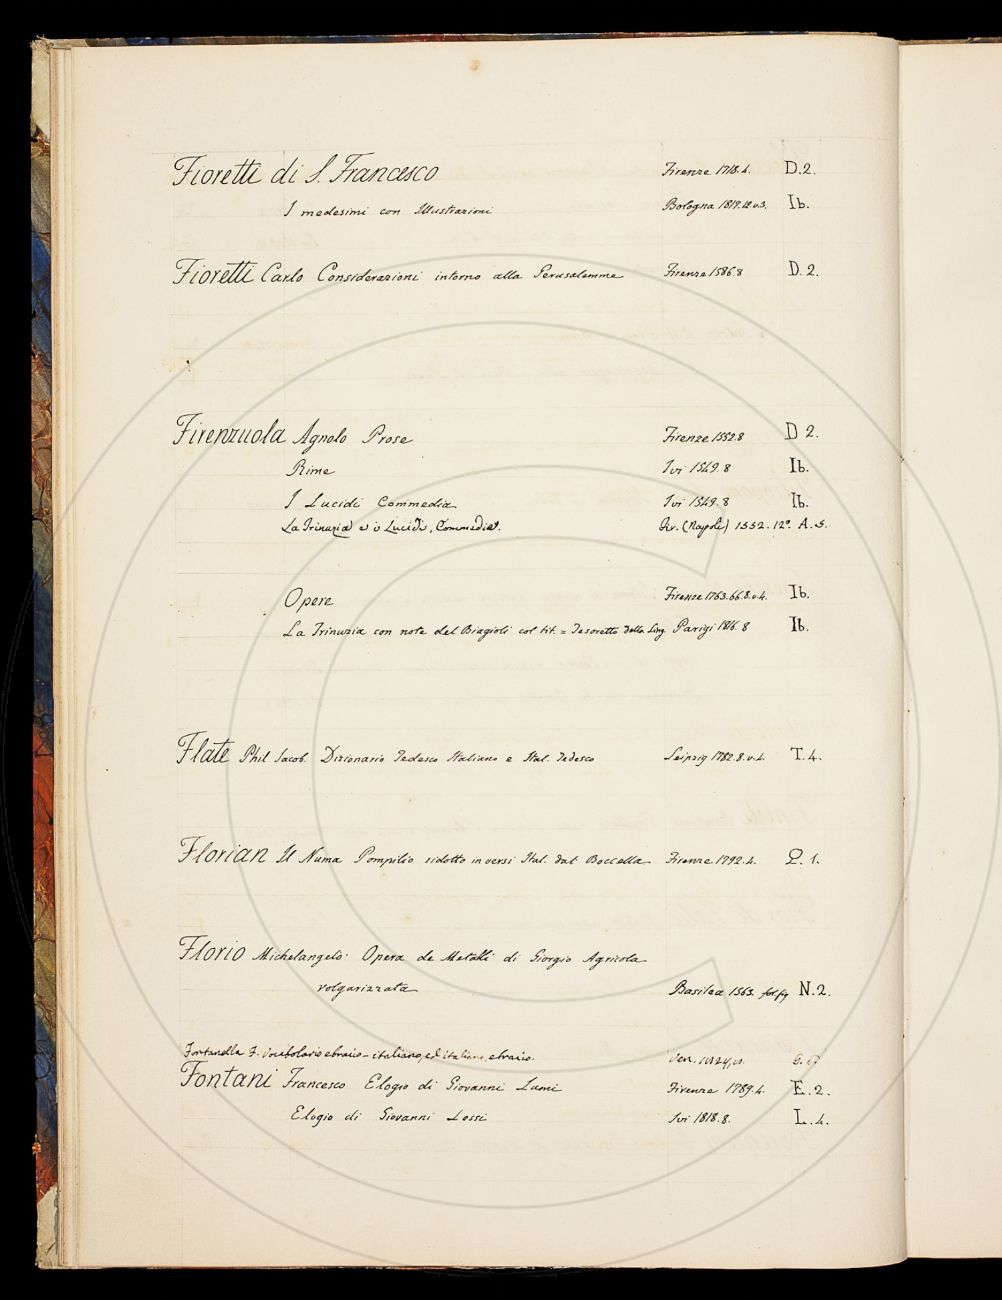 Fioretti di S. Francesco Firenze 1718.4. D.2.
I medesimi con Illustrazioni Bologna 1819.12 v.3. Ib.
Fioretti Carlo Considerazioni intorno alla Gerusalemme Firenze 1586 8 D.2.
Firenzuola Agnolo Prose Firenze 1552.8 D 2.
Rime Ivi 1549.8 Ib.
I Lucidi Commedia Ivi 1549.8 Ib.
La Trinuzia e i Lucidi, Commedie. (Napoli) 1552. 12º. A.5.
Opere Firenze 1763.66.8.v.4. Ib.
La Trinuzia con note del Biagioli col tit. = Tesoretto della Ling Parigi 1816.8 Ib.
Flate Phil Jacob. Dizionario Tedesco Italiano e Ital. Tedesco Leipzig 1782.8.v.4. T.4.
Florian Il Numa Pompilio ridotto in versi Ital. dal Boccella Firenze 1792.4. Q.1.
Florio Michelangelo Opera de Metalli di Giorgio Agricola
volgarizzata Basilea 1563. fol fig N.2.
Fontanella F. Vocabolario ebraico-italiano, ed italiano, ebraico. Ven. 1824,
Fontani Francesco Elogio di Giovanni Lami Firenze 1789.4. E.2.
Elogio di Giovanni Lessi Ivi 1818.8. L.4.